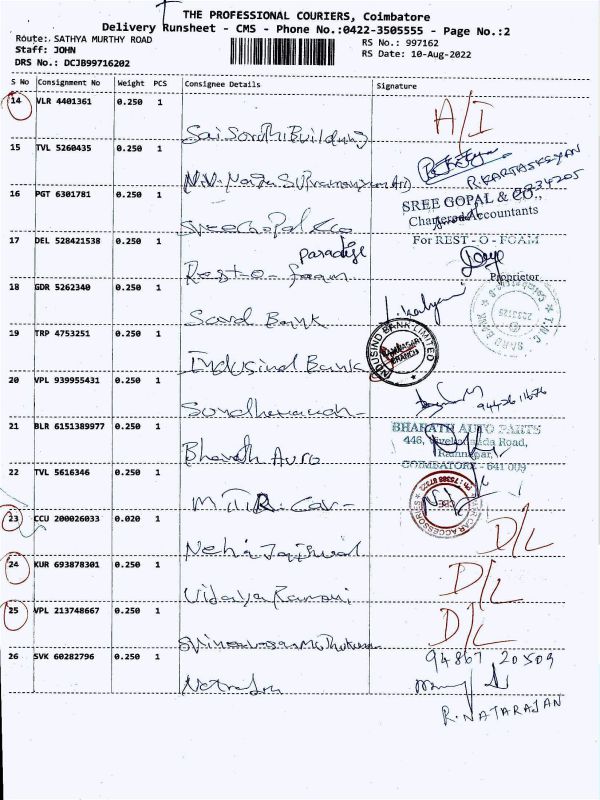 THE PROFESSIONAL COURIERS, Coimbatore
Delivery Runsheet - CMS - Phone No.:0422-3505555 - Page No.:2
Route: SATHYA MURTHY ROAD
RS No.: 997162
Staff: JOHN
RS Date: 10-Aug-2022
DRS No.: DCJB99716202
S No Consignment No Weight PCS Consignee Details Signature
14 VLR 4401361 0.250 1
A/I
Sai Building
15 TVL 5260435 0.250 1
16 PGT 6301781 0.250 1
SREE GOPAL & CO.,
Chartered Accountants
Sree Gopal & Co
17 DEL 528421538 0.250 1
For REST - O - FOAM
paradise
Rest-o-foam
Proprietor
18 GDR 5262340 0.250 1
Kalyani
Sard Bank
19 TRP 4753251 0.250 1
INDUSIND BANK LIMITED
RAMNAGAR
BRANCH
Indusind Bank
20 VPL 939955431 0.250 1
21 BLR 6151389977 0.250 1
BHARATH AUTO PARTS
446, Vivekananda Road,
Ramnagar,
COIMBATORE - 641 009
Bharath Auro
22 TVL 5616346 0.250 1
CAR ACCESSORIES
Car
23 CCU 200026033 0.020 1
D/L
Neha Jaiswal
24 KUR 693878301 0.250 1
D/L
Vidaya Ramani
25 VPL 213748667 0.250 1
D/L
26 SVK 60282796 0.250 1
94867 20509
R. NATARAJAN